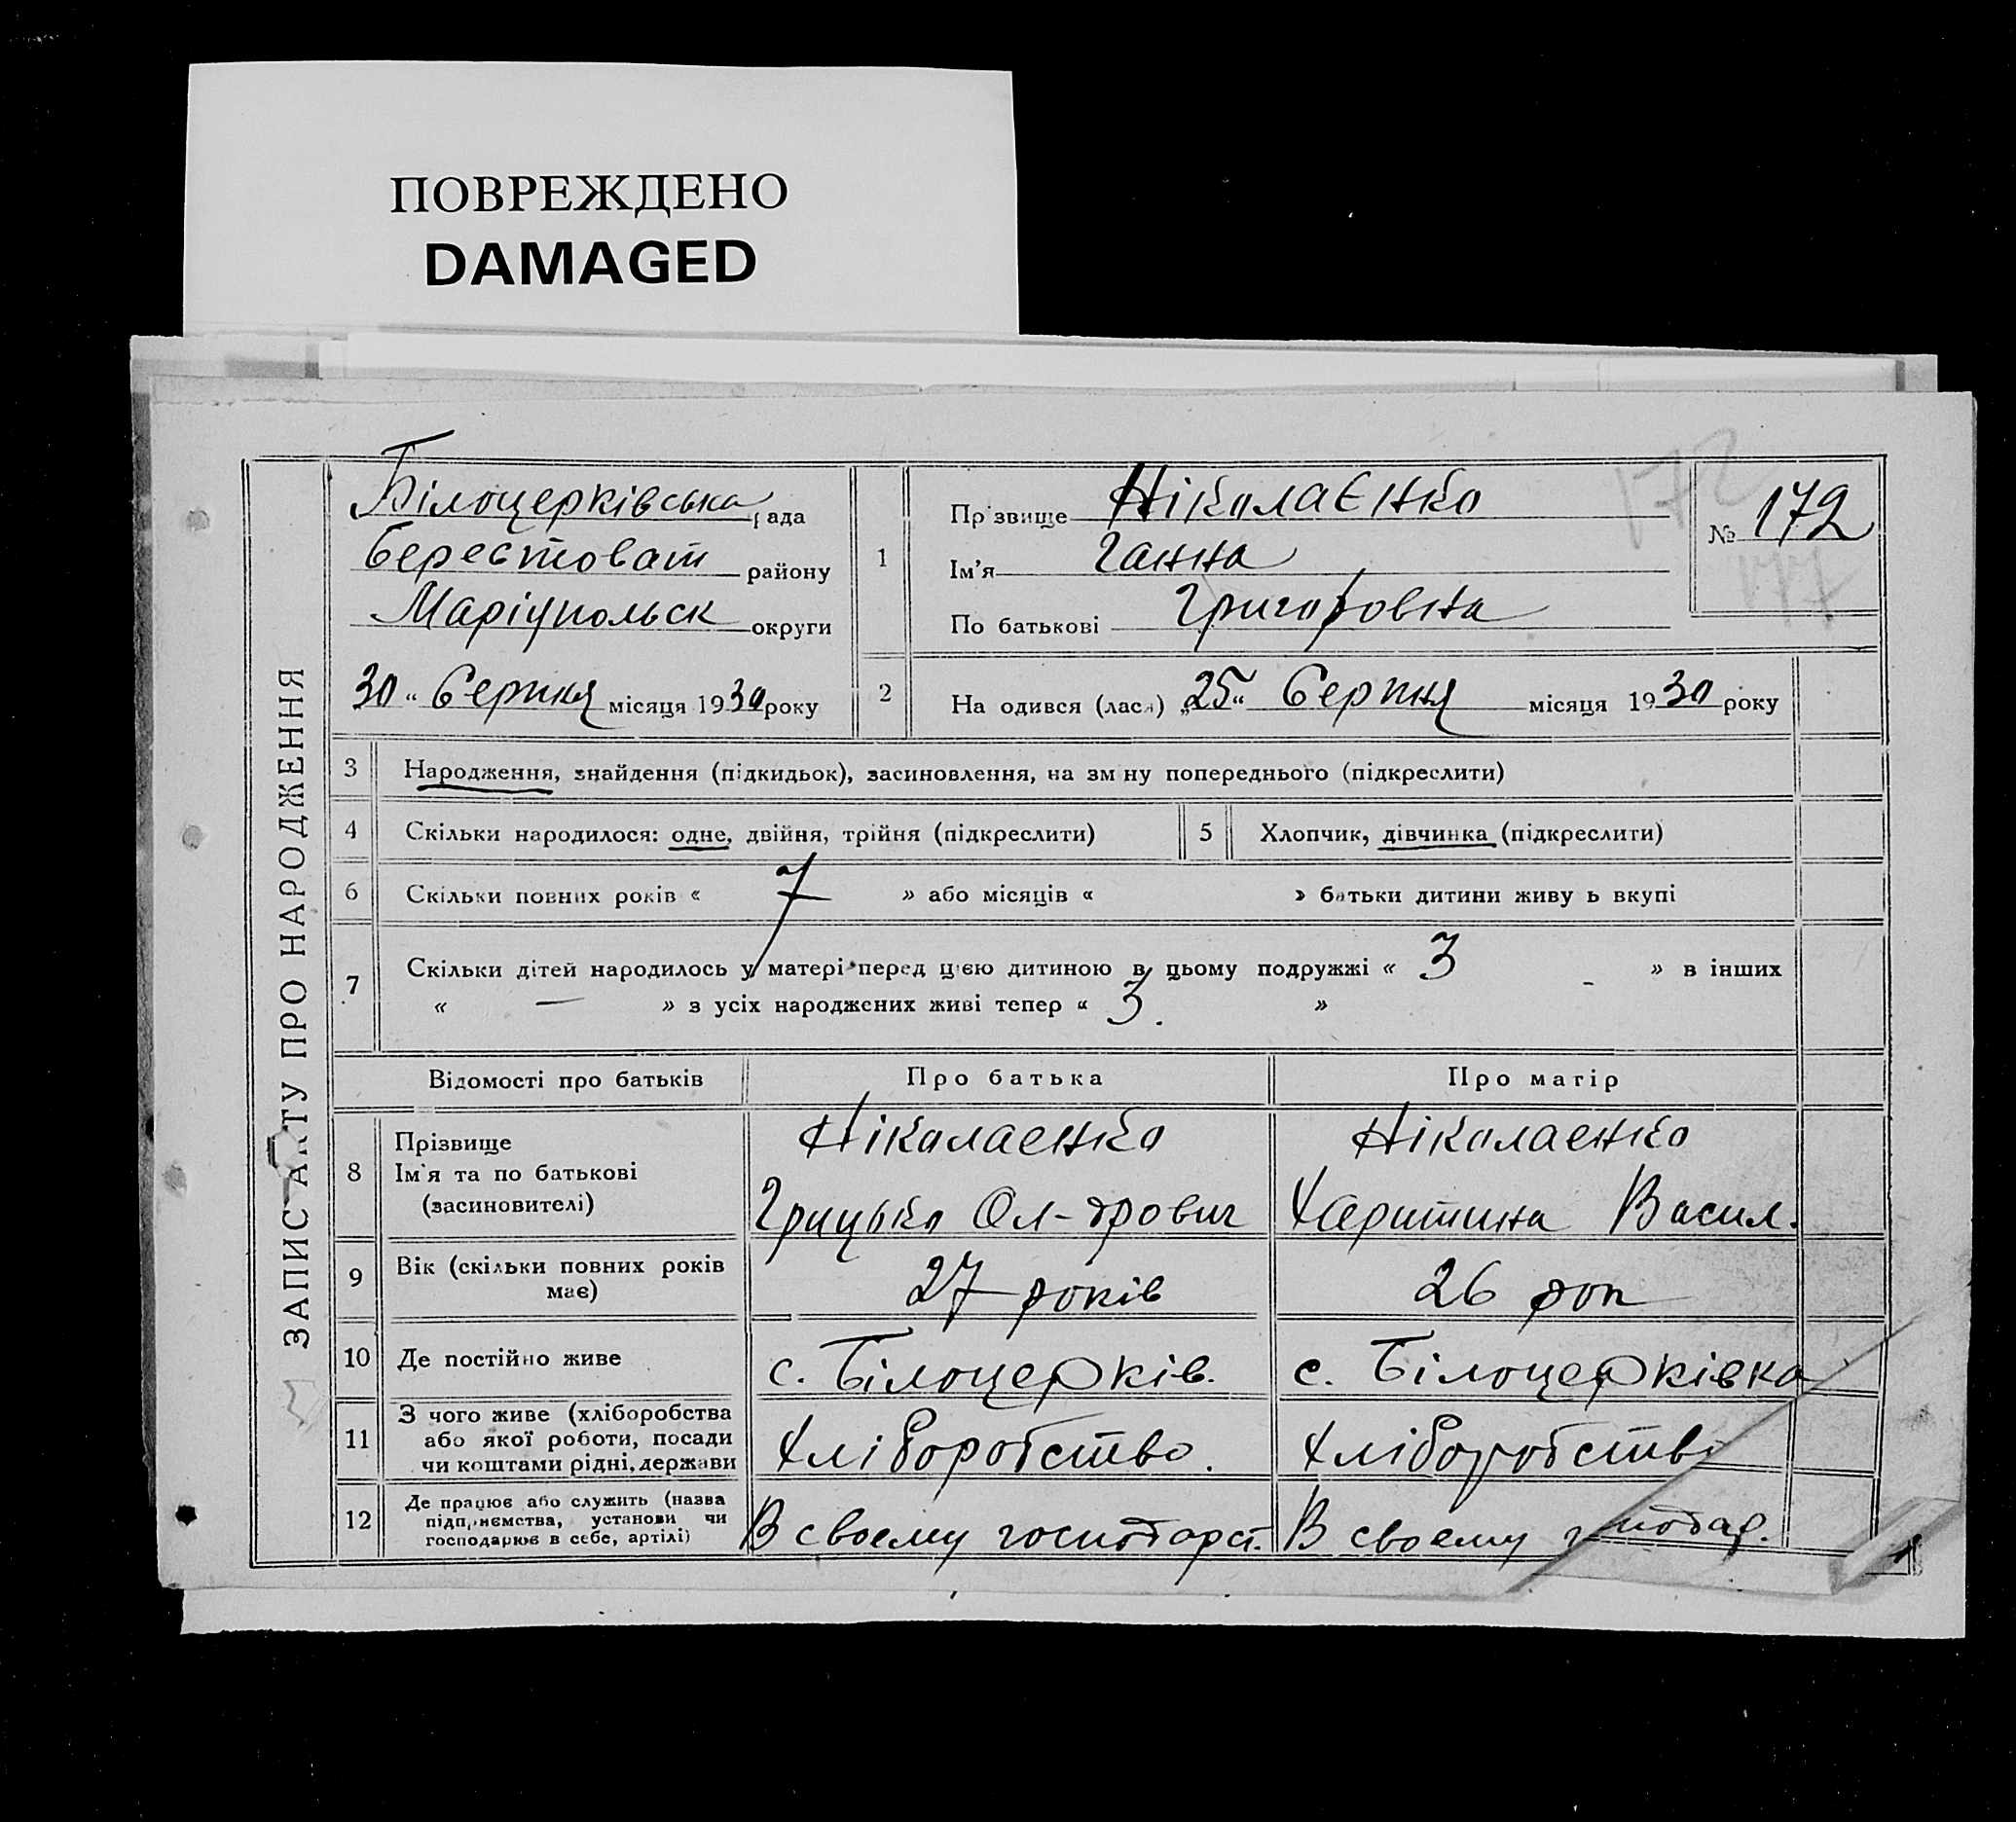 ПОВРЕЖДЕНО
DAMAGED
ЗАПИС АКТУ ПРО НАРОДЖЕННЯ
Білоцерківська рада
Берестоват району
Маріупольск округи
30 " Серпня місяця 1930 року
1
Прізвище Ніколаєнко
Ім'я Ганна
По батькові Григоровна
172
№ 172
177
2
На одився (лася) „25" Серпня місяця 1930 року
3 Народження, знайдення (підкидьок), засиновлення, на зм ну попереднього (підкреслити)
4 Скільки народилося: одне, двійня, трійня (підкреслити) 5 Хлопчик, дівчинка (підкреслити)
6 Скільки повних років « 7 » або місяців « » батьки дитини живу ь вкупі
7 Скільки дітей народилось у матері перед цією дитиною в цьому подружжі « 3 » в інших
« — » з усіх народжених живі тепер « 3. »
Відомості про батьків Про батька Про матір
8 Прізвище
Ім'я та по батькові
(засиновителі)
Ніколаенко
Грицько Ол-дрович
Ніколаенко
Харитина Васил.
9 Вік (скільки повних років
має)
27 років
26 рок
10 Де постійно живе с. Білоцерків. с. Білоцерківка
11 З чого живе (хліборобства
або якої роботи, посади
чи коштами рідні, держави
Хліборобство.
Хліборобство
12 Де працює або служить (назва
підприємства, установи чи
господарює в себе, артілі)
В своему господарст.
В своему господар.